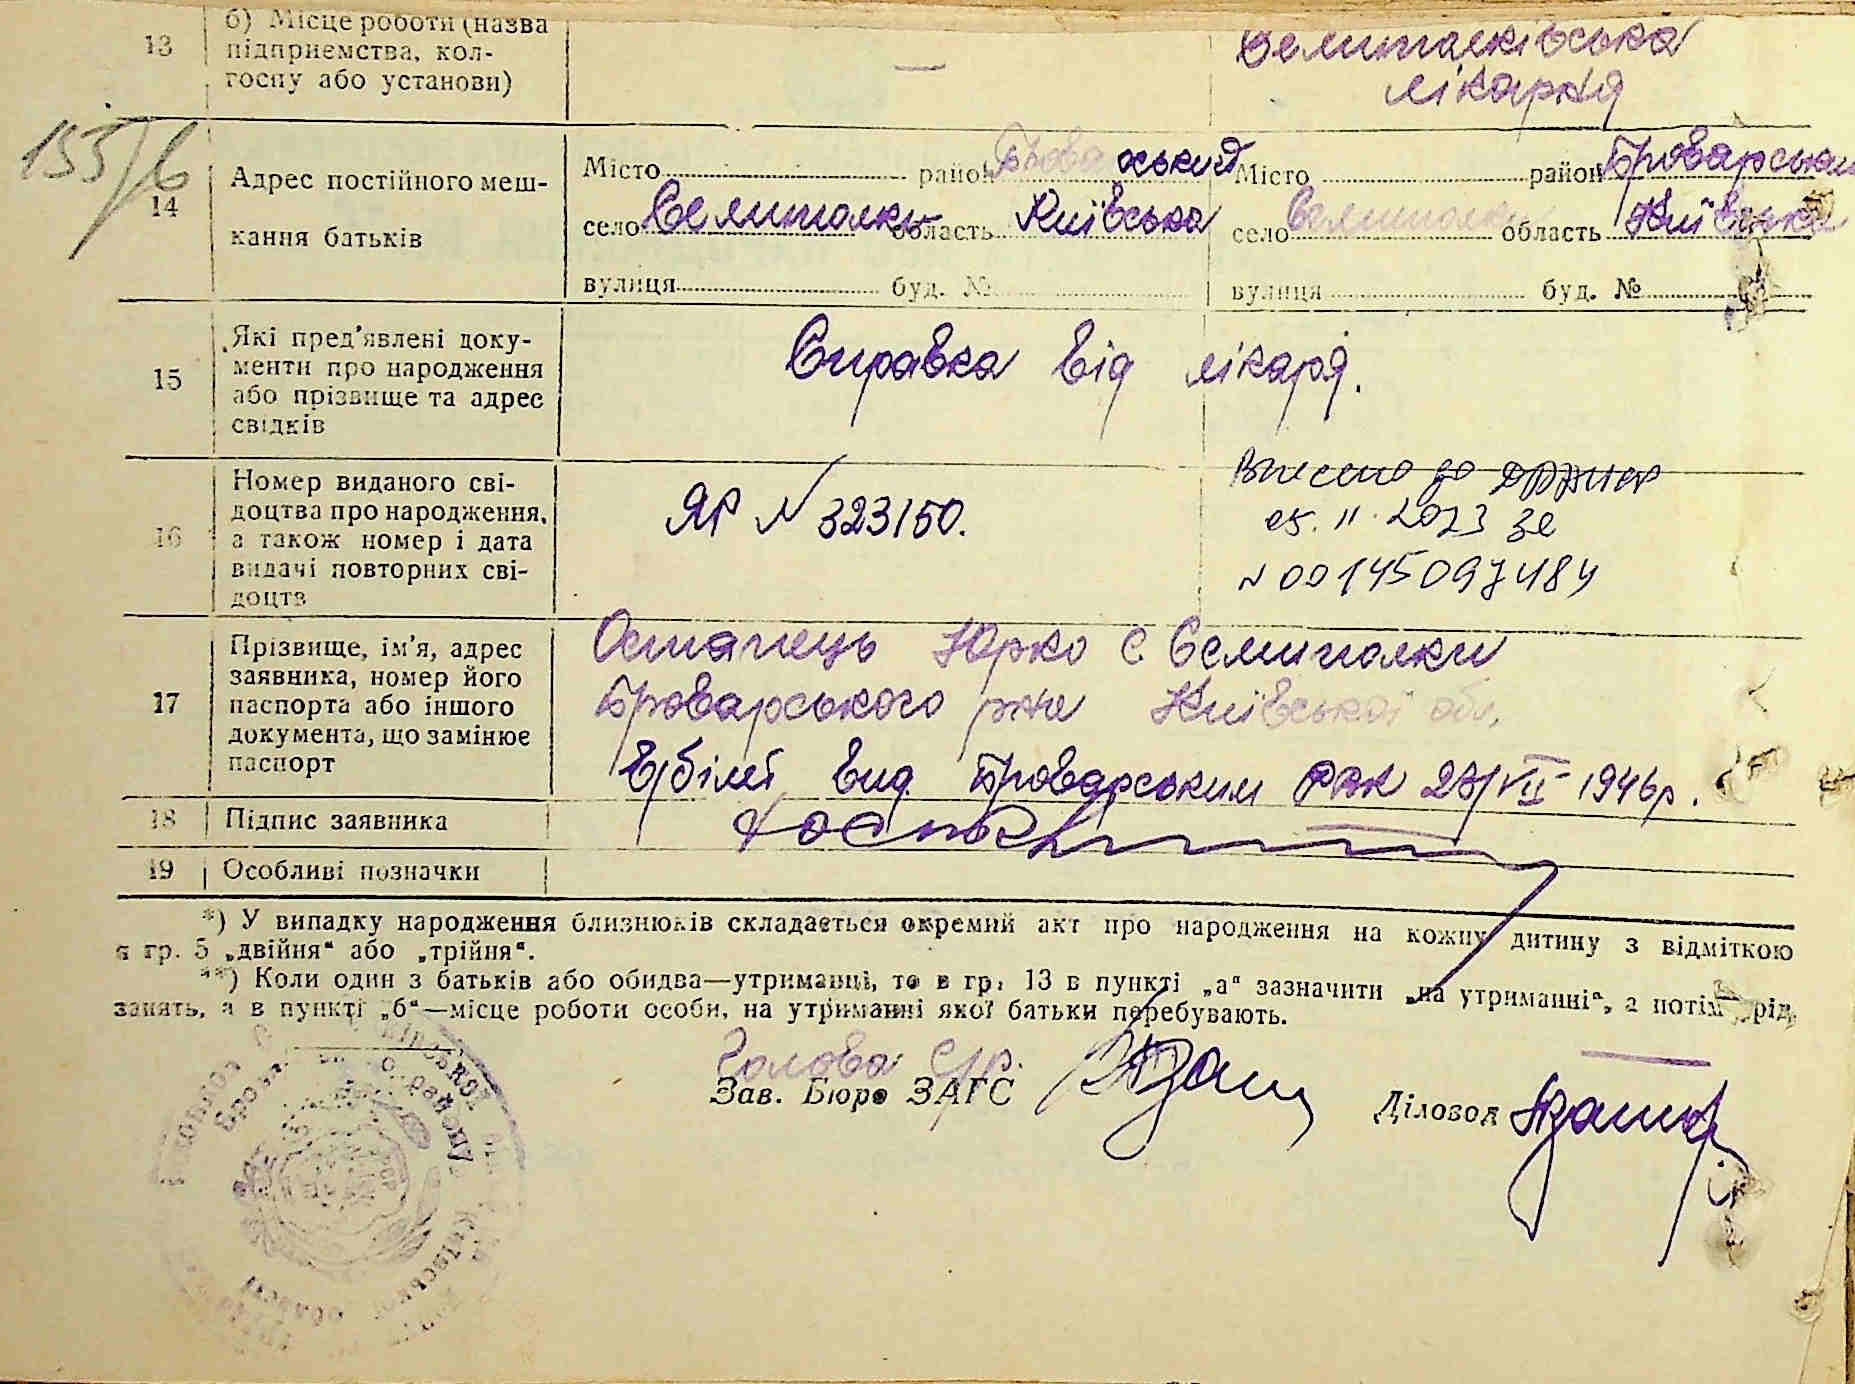 13 б) Місце роботи (назва підприємства, колгоспу або установи) — Семиполківська лікарня
155/6
14 Адрес постійного мешкання батьків
Місто район Броварський Місто район Броварський
село Семиполки область Київська село Семиполки область Київська
вулиця буд. № вулиця буд. №
15 Які пред'явлені документи про народження або прізвище та адрес свідків
Справка від лікаря.
16 Номер виданого свідоцтва про народження, а також номер і дата видачі повторних свідоцтв
ЯР N 323150.
Внесено до ДРАЦСГ
25.11.2023 за
N 00145097484
17 Прізвище, ім'я, адрес заявника, номер його паспорта або іншого документа, що замінює паспорт
Остапець Юрко с. Семиполки
Броварського р-на Київської обл.
В/білет вид. Броварським РВК 27/VII 1946р.
18 Підпис заявника
19 Особливі позначки
*) У випадку народження близнюків складається окремий акт про народження на кожну дитину з відміткою
в гр. 5 „двійня“ або „трійня“.
**) Коли один з батьків або обидва—утриманці, то в гр. 13 в пункті „а“ зазначити „на утриманні“, а потім рід
занять, а в пункті „б“—місце роботи особи, на утриманні якої батьки перебувають.
Голова С/р.
Зав. Бюро ЗАГС Діловод